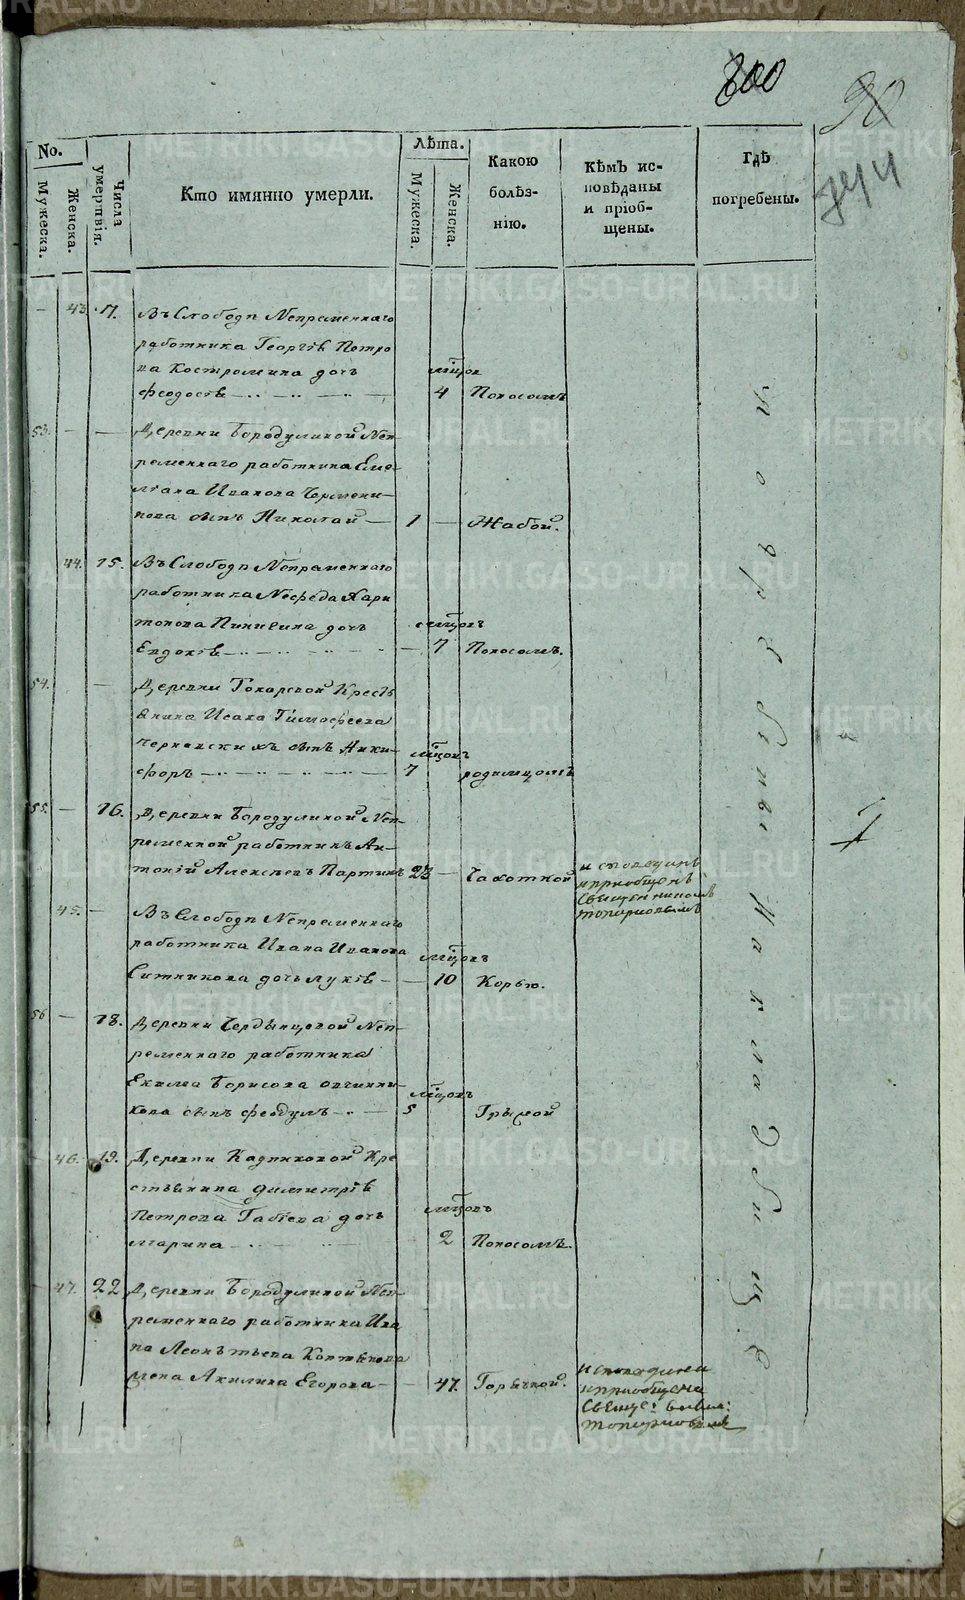 800
90
No.
Мужеска.
Женска.
Числа умертвія.
Кто имянно умерли.
Лѣта.
Мужеска.
Женска.
Какою
болѣз-
нію.
Кѣмъ ис-
повѣданы
и пріоб-
щены.
Гдѣ
погребены.
43. 11. Въ Слободѣ Непременнаго
работника Георгія Петро
ва Костромина дочь
мѣцов
Феодосія 4 Поносомъ
53. Деревни Бородулиной Неп
ременнаго работника Еме
льяна Иванова
сынъ Николай 1 Жабой.
44. 15. Въ Слободѣ Непременнаго
работника Мефеда Хари
тонова Пинигина дочь мѣцовъ
Евдокія 7 Поносомъ.
54. Деревни Токаревой Кресть
янина Исака Тимофеева
Чернавскихъ сынъ Ники- мѣцовъ
форъ 7 родимцомъ
55. 16. Деревни Бородулиной Неп-
ременной работникъ Ан-
тоній Алексѣевъ Партинъ 23 Чахоткой
исповѣданъ
и приобщенъ
Священникомъ
Топорковымъ
45. Въ Слободѣ Непременнаго
работника Ивана Иванова мѣцовъ
Ситникова дочь Лукія 10 Корью.
56 18. Деревни Чердынцовой Неп-
ременнаго работника
Екима Борисова Овчинни- мѣцовъ
кова сынъ Феодулъ 5 Грыжой
46. 19. Деревни Кадниковой Кре
стьянина Димитрія
Петрова Габіева дочь мѣцовъ
Марина 2 Поносомъ.
47. 22 Деревни Бородулиной Неп-
ременнаго работника Ива
на Леонтьева
жена Акилина Егорова 47. Горячкой.
исповѣдана
и приобщена
Свяще:
Топорковымъ
Погребены на кладбищѣ